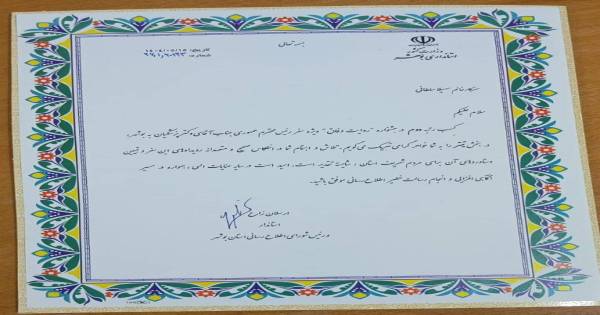 بسمه تعالی
وزارت کشور
استانداری بوشهر
تاریخ: ۱۴۰۴/۰۵/۱۵
شماره:
سرکار خانم سهیلا سلطانی
سلام علیکم
کسب رتبه دوم در جشنواره "روایت وفاق" ویژه سفر رئیس محترم جمهوری جناب آقای دکتر پزشکیان به بوشهر،
در بخش تیتر را به شما خواهر گرامی تبریک می گویم. تلاش و اهتمام شما در انعکاس صحیح و متعهدانه رویدادهای این سفر و تبیین
دستاوردهای آن برای مردم شریف استان، شایسته تقدیر است. امید است در سایه عنایات الهی، همواره در مسیر
آگاهی افزایی و انجام رسالت خطیر اطلاع رسانی موفق باشید.
ارسلان زارع
استاندار
و رئیس شورای اطلاع رسانی استان بوشهر